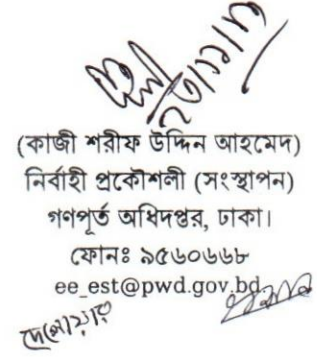 (কাজী শরীফ উদ্দিন আহমেদ)
নির্বাহী প্রকৌশলী (সংস্থাপন)
গণপূর্ত অধিদপ্তর, ঢাকা।
ফোনঃ ৯৫৬০৬৬৮
ee_est@pwd.gov.bd
দেলোয়ার